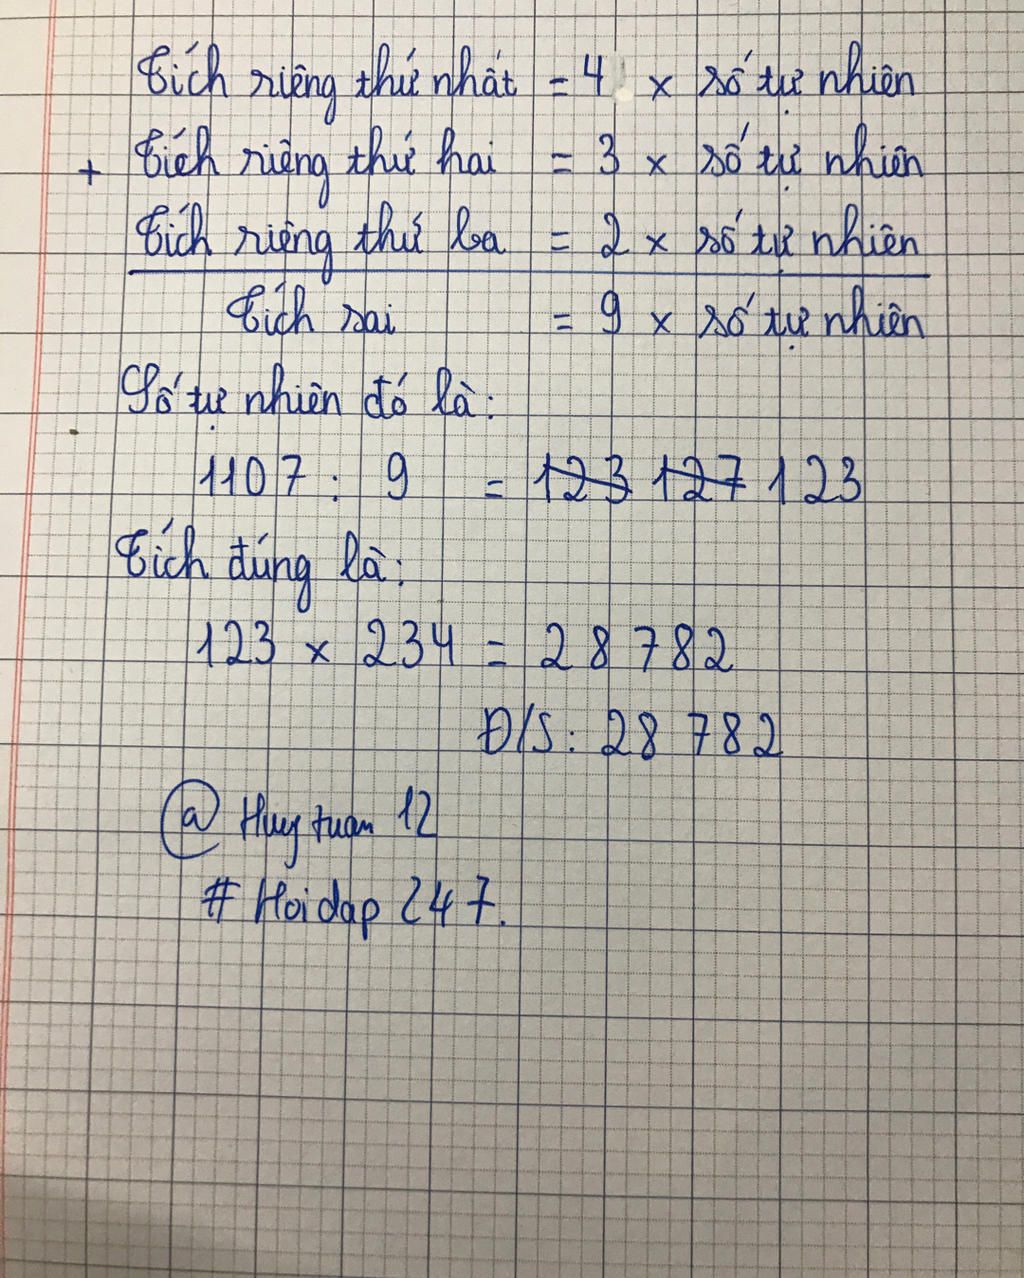 Tích riêng thứ nhất = 4 x số tự nhiên
+ Tích riêng thứ hai = 3 x số tự nhiên
Tích riêng thứ ba = 2 x số tự nhiên
Tích sai = 9 x số tự nhiên
Số tự nhiên đó là:
1107 : 9 = 123 127 123
Tích đúng là:
123 x 234 = 28 782
Đ/S: 28 782
@ Huy tuan 12
# Hoidap 247.